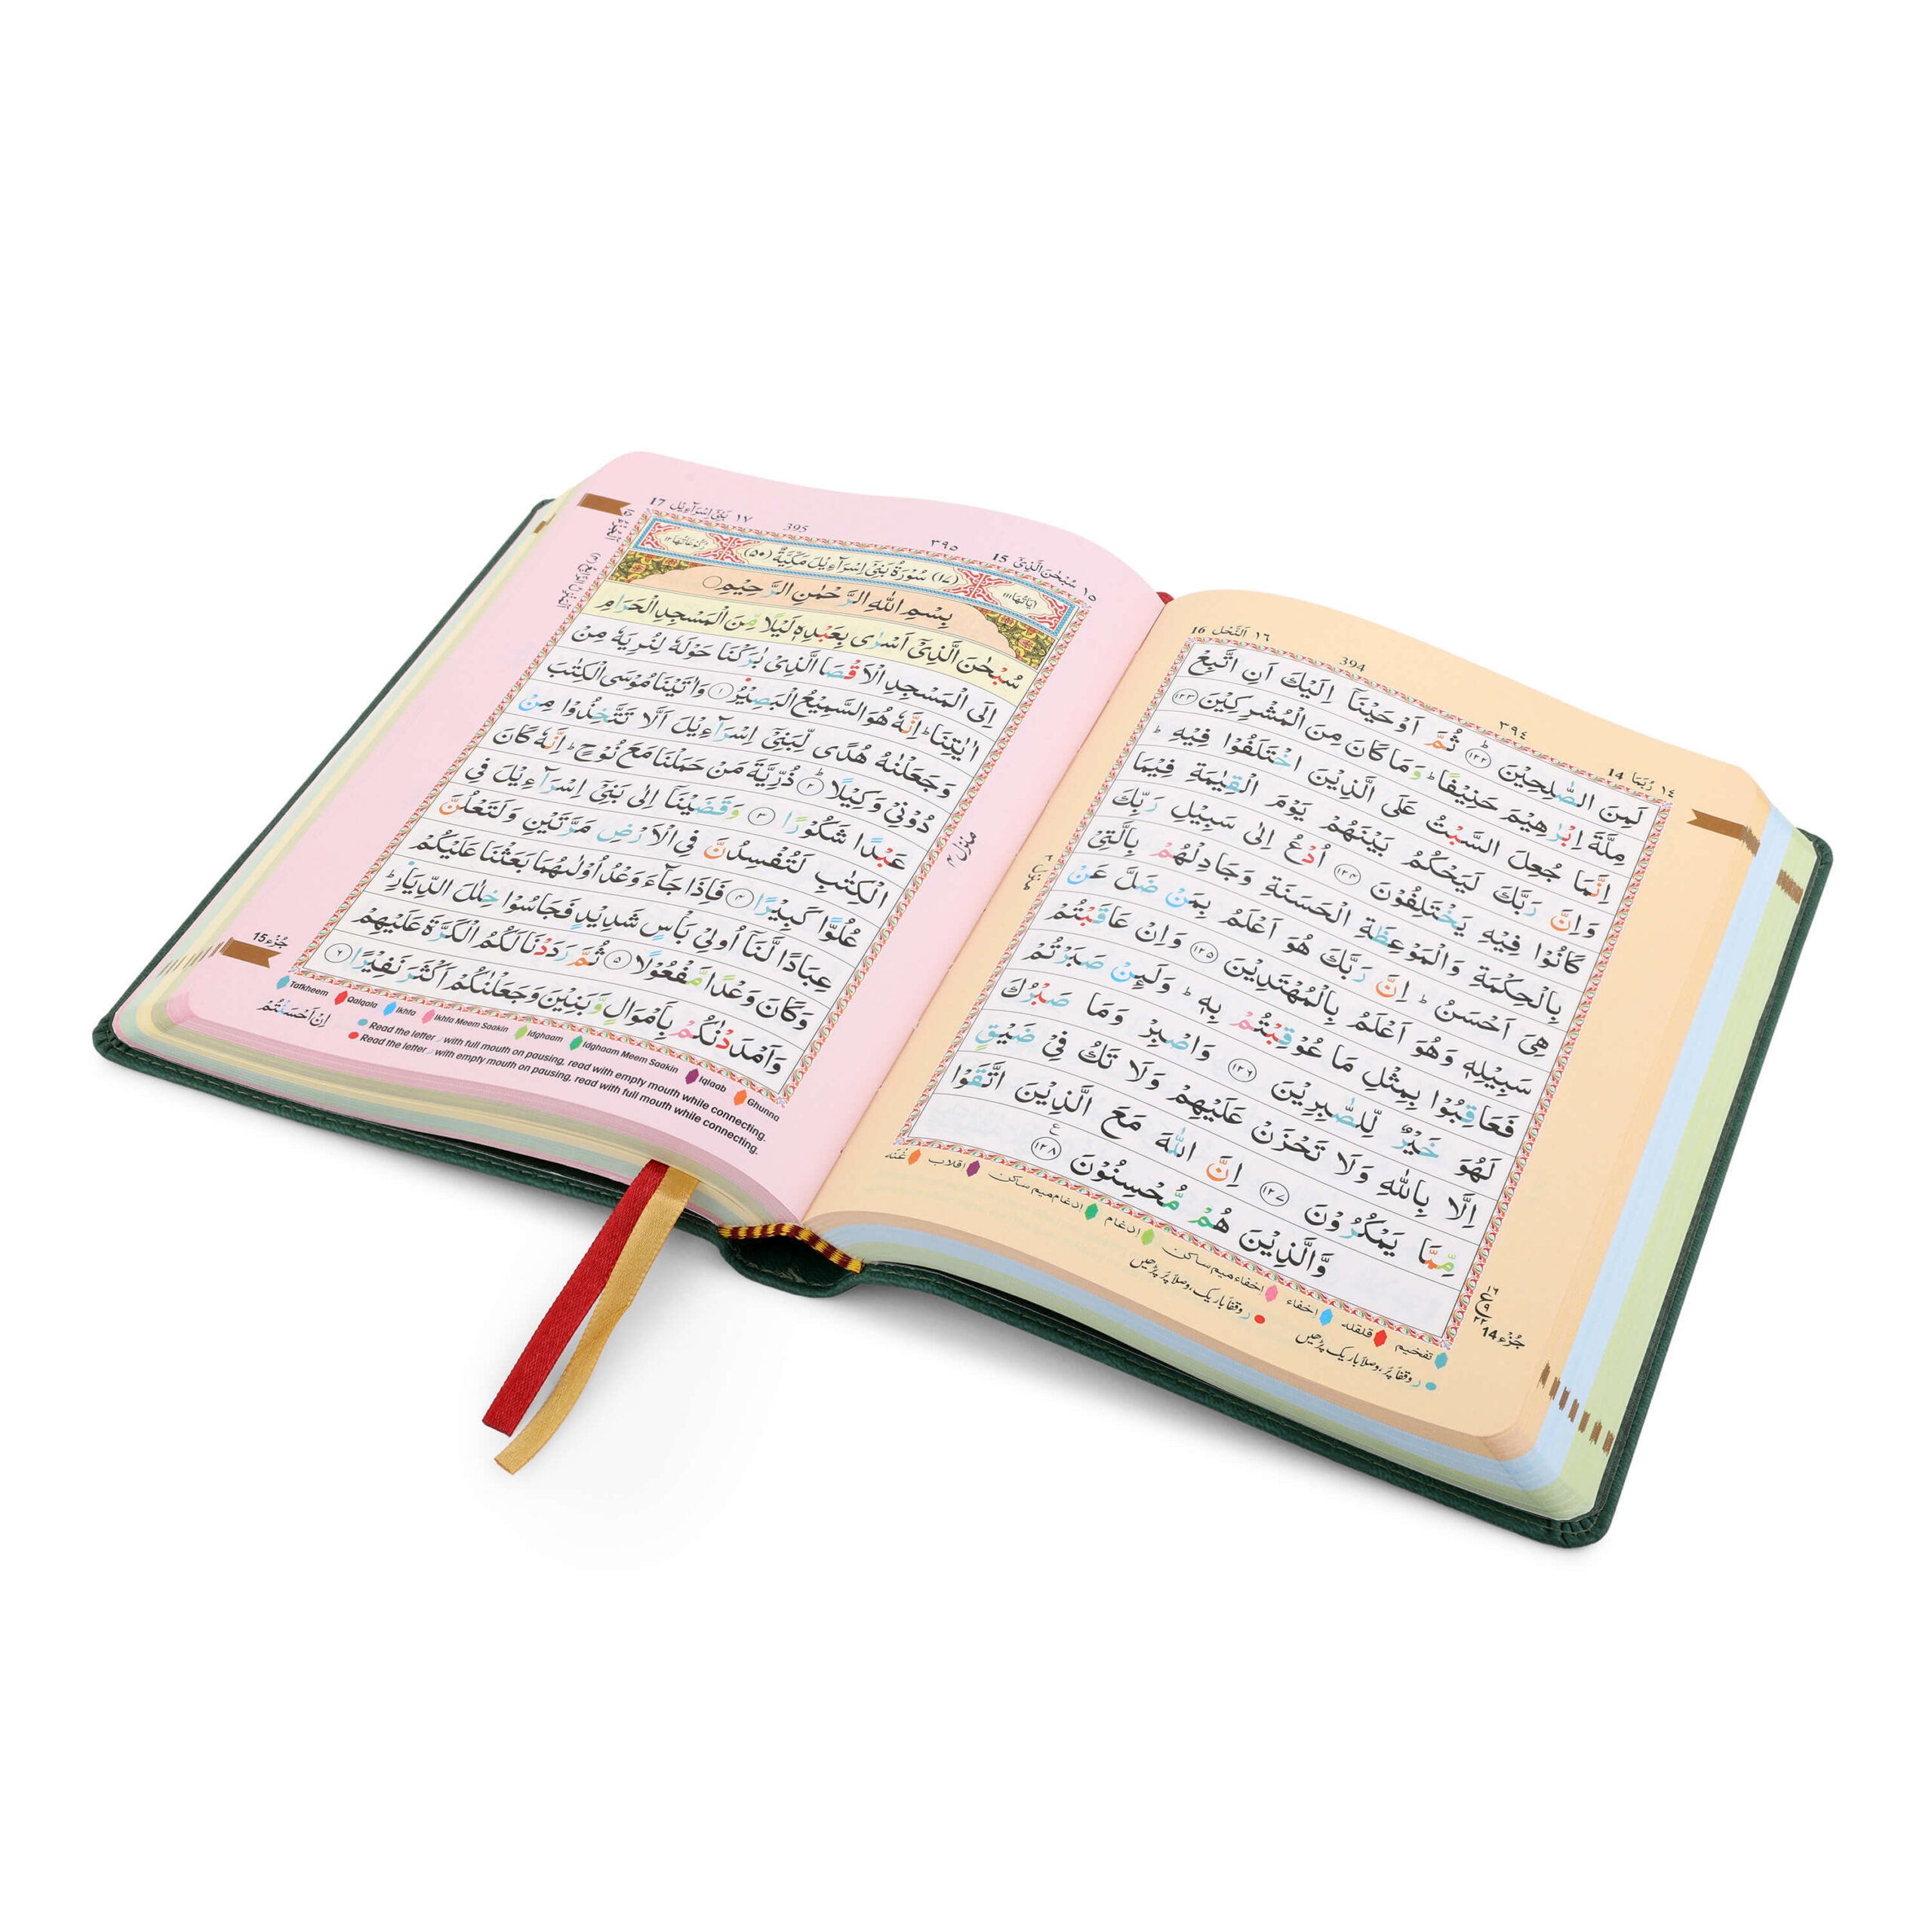 16 اَلنَّحْل ١٦
394
٣٩٤
14 رُبَمَا ١٤
لَمِنَ الصّٰلِحِيْنَ ﴿١٢٢﴾ ؕ ثُمَّ اَوْحَيْنَاۤ اِلَيْكَ اَنِ اتَّبِعْ
مِلَّةَ اِبْرٰهِيْمَ حَنِيْفًا ؕ وَمَا كَانَ مِنَ الْمُشْرِكِيْنَ ﴿١٢٣﴾
اِنَّمَا جُعِلَ السَّبْتُ عَلَى الَّذِيْنَ اخْتَلَفُوْا فِيْهِ ؕ
وَاِنَّ رَبَّكَ لَيَحْكُمُ بَيْنَهُمْ يَوْمَ الْقِيٰمَةِ فِيْمَا
كَانُوْا فِيْهِ يَخْتَلِفُوْنَ ﴿١٢٤﴾ اُدْعُ اِلٰى سَبِيْلِ رَبِّكَ
بِالْحِكْمَةِ وَالْمَوْعِظَةِ الْحَسَنَةِ وَجَادِلْهُمْ بِالَّتِيْ
هِيَ اَحْسَنُ ؕ اِنَّ رَبَّكَ هُوَ اَعْلَمُ بِمَنْ ضَلَّ عَنْ
سَبِيْلِهٖ وَهُوَ اَعْلَمُ بِالْمُهْتَدِيْنَ ﴿١٢٥﴾ وَاِنْ عَاقَبْتُمْ
فَعَاقِبُوْا بِمِثْلِ مَا عُوْقِبْتُمْ بِهٖ ؕ وَلَىِٕنْ صَبَرْتُمْ
لَهُوَ خَيْرٌ لِّلصّٰبِرِيْنَ ﴿١٢٦﴾ وَاصْبِرْ وَمَا صَبْرُكَ
اِلَّا بِاللّٰهِ وَلَا تَحْزَنْ عَلَيْهِمْ وَلَا تَكُ فِيْ ضَيْقٍ
مِّمَّا يَمْكُرُوْنَ ﴿١٢٧﴾ اِنَّ اللّٰهَ مَعَ الَّذِيْنَ اتَّقَوْا
وَّالَّذِيْنَ هُمْ مُّحْسِنُوْنَ ﴿١٢٨﴾ ع
جُزْء14
تفخیم قلقله اخفاء اخفاء میم ساکن ادغام ادغام میم ساکن اقلاب غُنّه
ر وقفاً پُر، وصلاً باریک پڑھیں
ر وقفاً باریک، وصلاً پُر پڑھیں
17 بَنِيْٓ اِسْرَآءِيْل ١٧
395
٣٩٥
15 سُبْحٰنَ الَّذِيْٓ ١٥
(١٧) سُوْرَةُ بَنِيْٓ اِسْرَآءِيْلَ مَكِّيَّةٌ (٥٠)
اٰيَاتُهَا ١١١
رُكُوْعَاتُهَا ١٢
بِسْمِ اللّٰهِ الرَّحْمٰنِ الرَّحِيْمِ
سُبْحٰنَ الَّذِيْٓ اَسْرٰى بِعَبْدِهٖ لَيْلًا مِّنَ الْمَسْجِدِ الْحَرَامِ
اِلَى الْمَسْجِدِ الْاَقْصَا الَّذِيْ بٰرَكْنَا حَوْلَهٗ لِنُرِيَهٗ مِنْ
اٰيٰتِنَا ؕ اِنَّهٗ هُوَ السَّمِيْعُ الْبَصِيْرُ ﴿١﴾ وَاٰتَيْنَا مُوْسَى الْكِتٰبَ
وَجَعَلْنٰهُ هُدًى لِّبَنِيْٓ اِسْرَآءِيْلَ اَلَّا تَتَّخِذُوْا مِنْ
دُوْنِيْ وَكِيْلًا ﴿٢﴾ ؕ ذُرِّيَّةَ مَنْ حَمَلْنَا مَعَ نُوْحٍ ؕ اِنَّهٗ كَانَ
عَبْدًا شَكُوْرًا ﴿٣﴾ وَقَضَيْنَآ اِلٰى بَنِيْٓ اِسْرَآءِيْلَ فِي
الْكِتٰبِ لَتُفْسِدُنَّ فِي الْاَرْضِ مَرَّتَيْنِ وَلَتَعْلُنَّ
عُلُوًّا كَبِيْرًا ﴿٤﴾ فَاِذَا جَآءَ وَعْدُ اُوْلٰىهُمَا بَعَثْنَا عَلَيْكُمْ
عِبَادًا لَّنَآ اُولِيْ بَاْسٍ شَدِيْدٍ فَجَاسُوْا خِلٰلَ الدِّيَارِ ؕ
وَكَانَ وَعْدًا مَّفْعُوْلًا ﴿٥﴾ ثُمَّ رَدَدْنَا لَكُمُ الْكَرَّةَ عَلَيْهِمْ
وَاَمْدَدْنٰكُمْ بِاَمْوَالٍ وَّبَنِيْنَ وَجَعَلْنٰكُمْ اَكْثَرَ نَفِيْرًا ﴿٦﴾
منزل ٤
جُزْء15
اِنْ اَحْسَنْتُمْ
Tafkheem Qalqala Ikhfa Ikhfa Meem Saakin Idghaam Idghaam Meem Saakin Iqlaab Ghunna
Read the letter ر with full mouth on pausing, read with empty mouth while connecting.
Read the letter ر with empty mouth on pausing, read with full mouth while connecting.